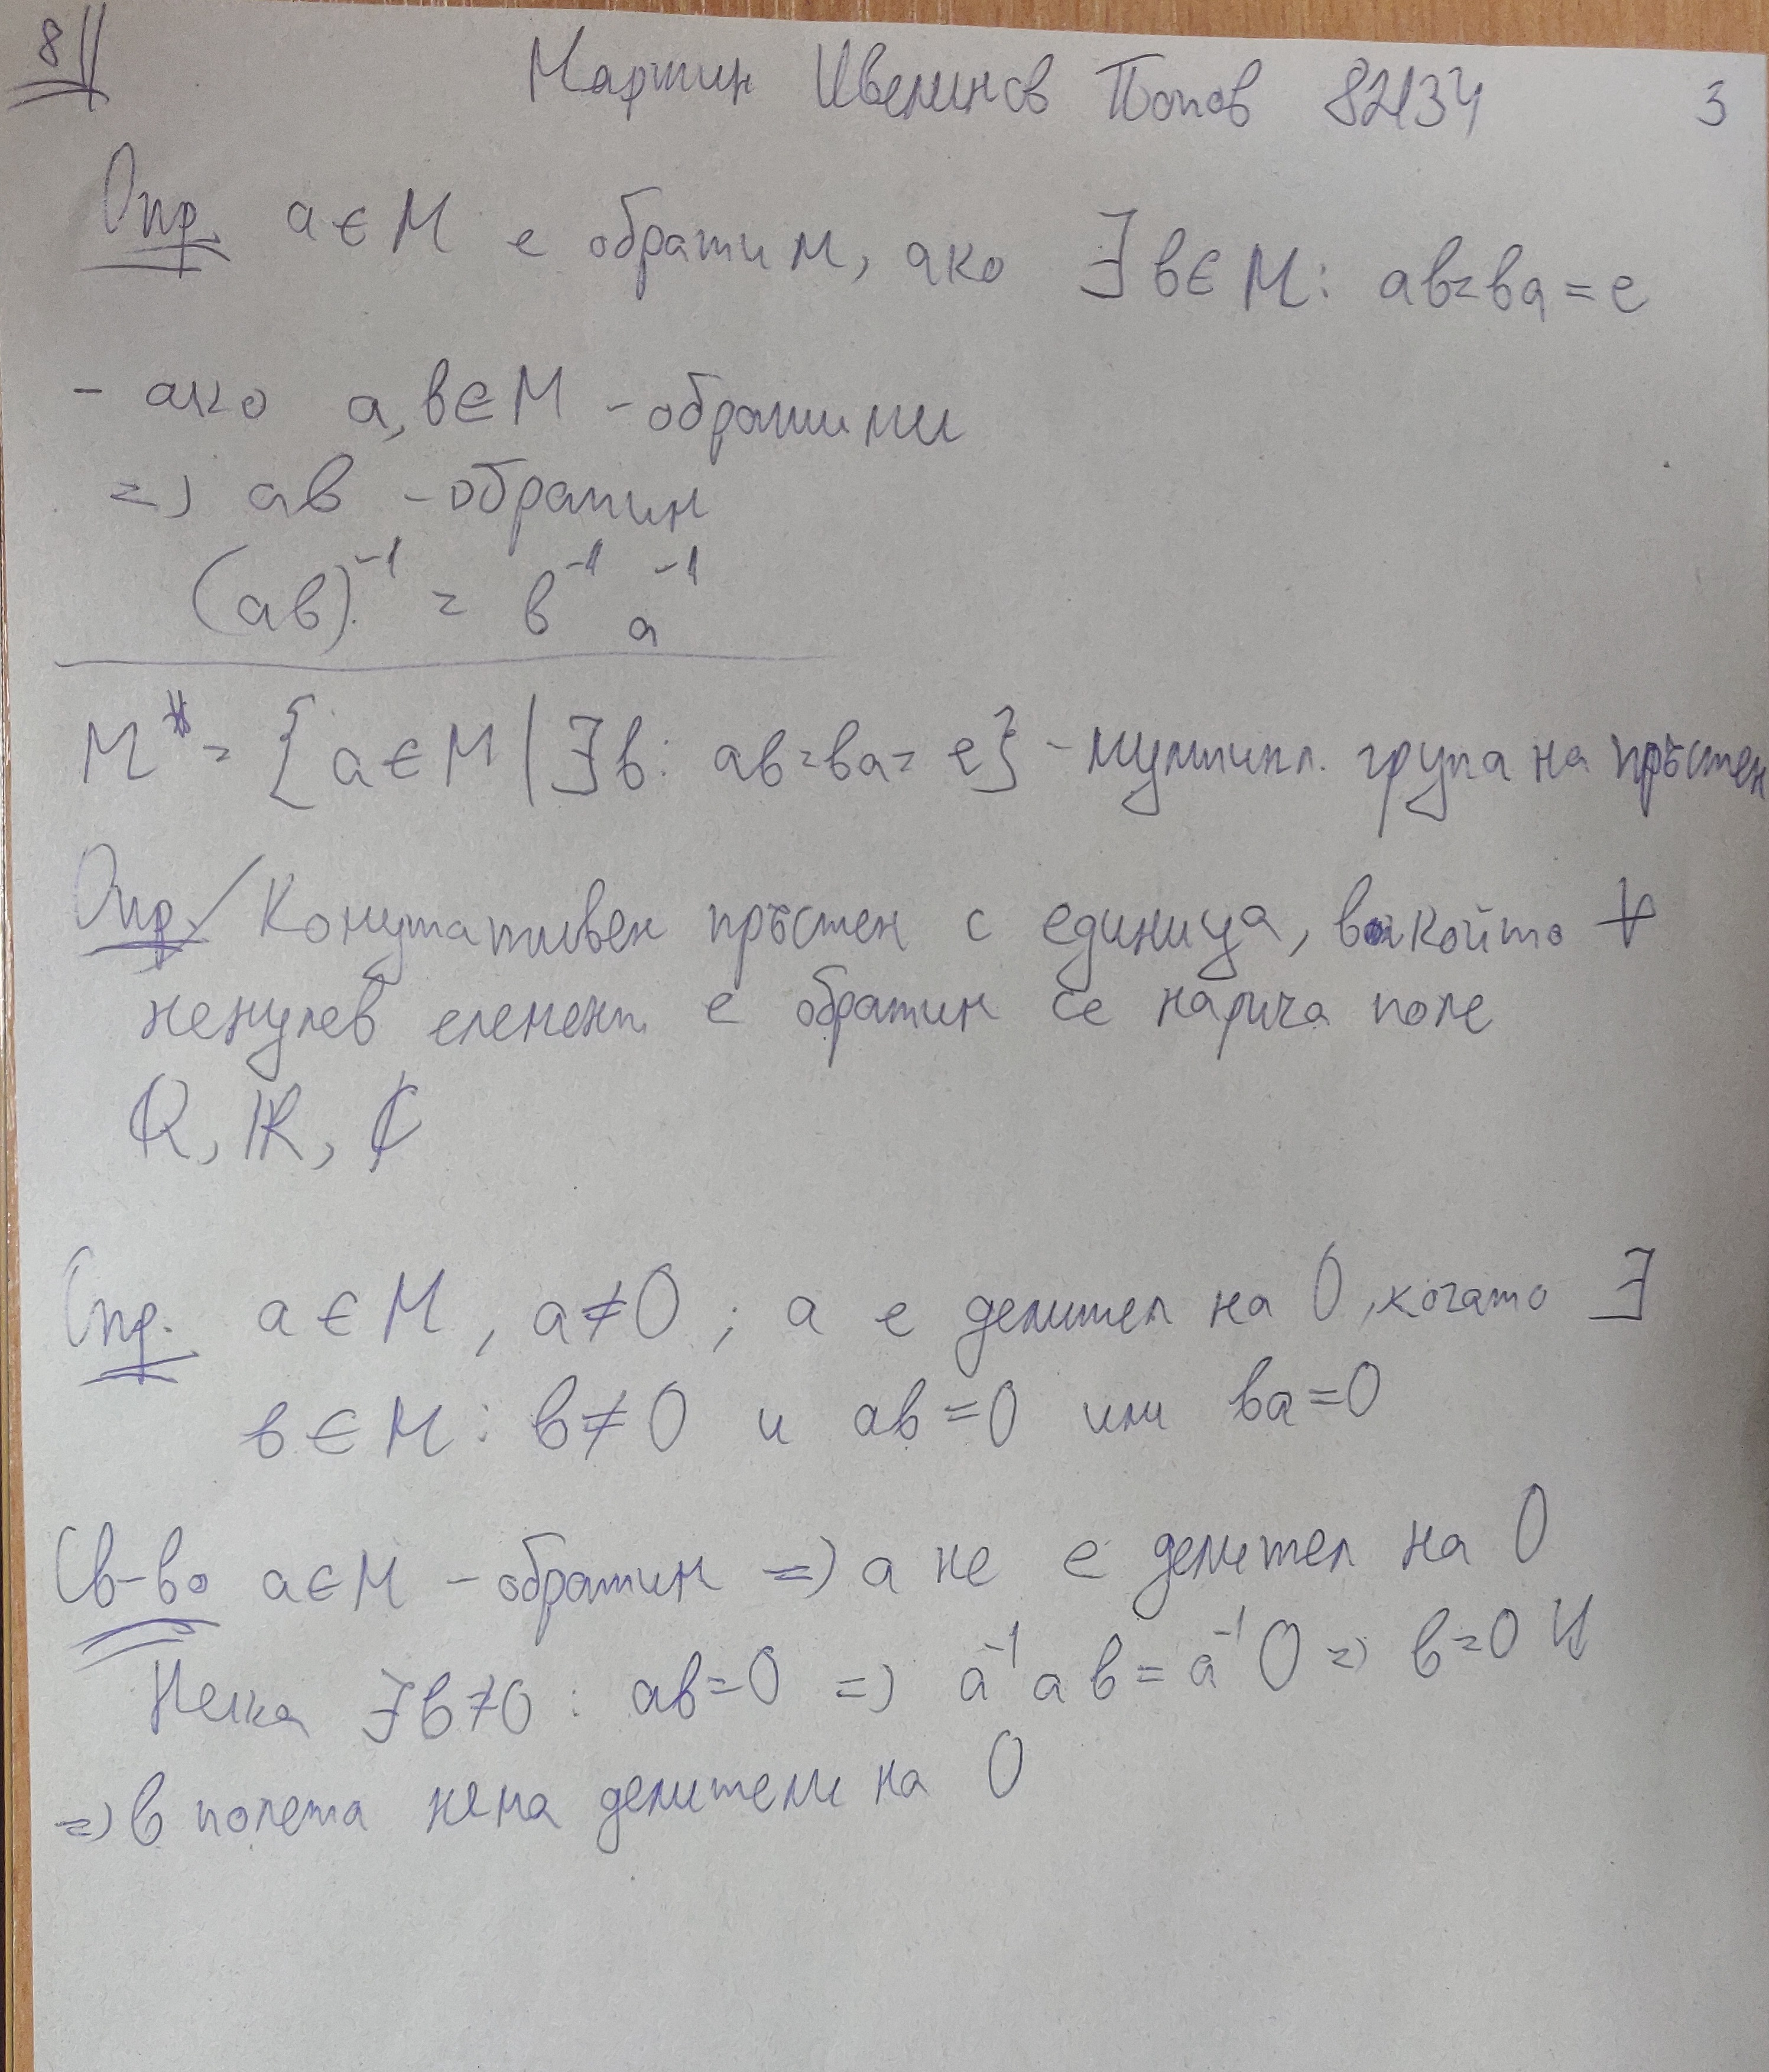 8 Мартин Ивелинов Попов 82134 3
Опр. a ∈ M е обратим, ако ∃ b ∈ M: ab=ba=e
- ако a, b ∈ M - обратими
=> ab - обратим
(ab)⁻¹ = b⁻¹ a⁻¹
M* = {a ∈ M | ∃ b: ab=ba=e} - мултипл. група на пръстен
Опр. Комутативен пръстен с единица, в който ∀
ненулев елемент е обратим се нарича поле
Q, ℝ, ℂ
Опр. a ∈ M, a≠0; a е делител на 0, когато ∃
b ∈ M: b≠0 и ab=0 или ba=0
Св-во a ∈ M - обратим => a не е делител на 0
Нека ∃ b≠0: ab=0 => a⁻¹ab=a⁻¹0 => b=0
=> в полета няма делители на 0